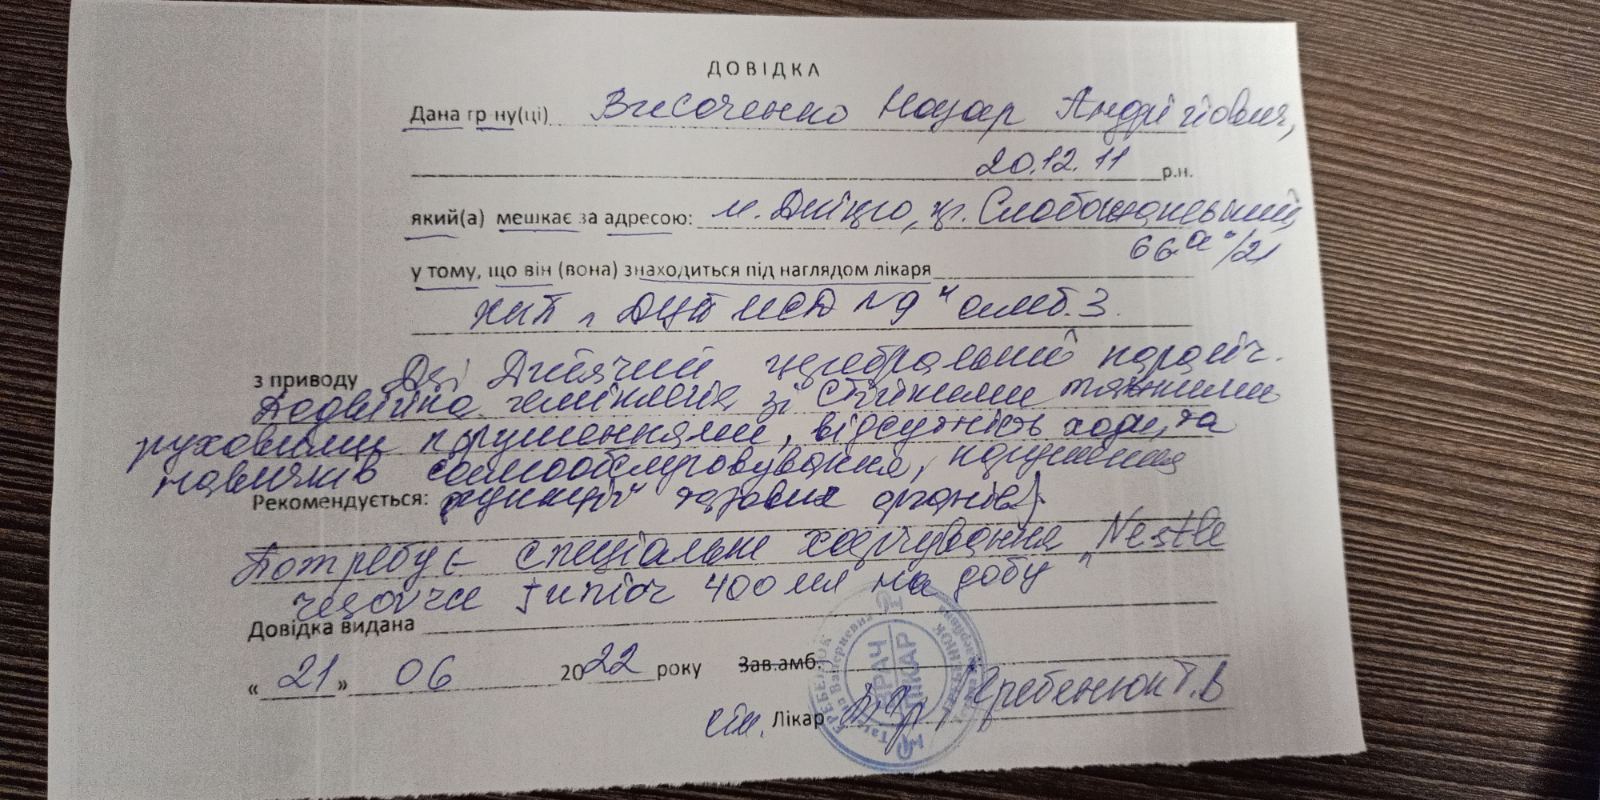 ДОВІДКА
Дана гр-ну(ці) Височенко Назар Андрійович,
20.12.11 р.н.
який(а) мешкає за адресою: м. Дніпро, пр. Слобожанський,
66 "а"/21
у тому, що він (вона) знаходиться під наглядом лікаря
КНП " ДЦПМСД №9" амб.3
з приводу Дз: Дитячий церебральний параліч.
Подвійна геміплегія зі стійкими тяжкими
руховими порушеннями, відсутність ходи, та
навичків самообслуговування, порушення
Рекомендується: функції тазових органів).
Потребує спеціальне харчування "Nestle
Junior 400 мл на добу"
Довідка видана
« 21 » 06 2022 року Зав.амб.
сім. Лікар Гребенюк Т.В
ВРАЧ
ЛІКАР